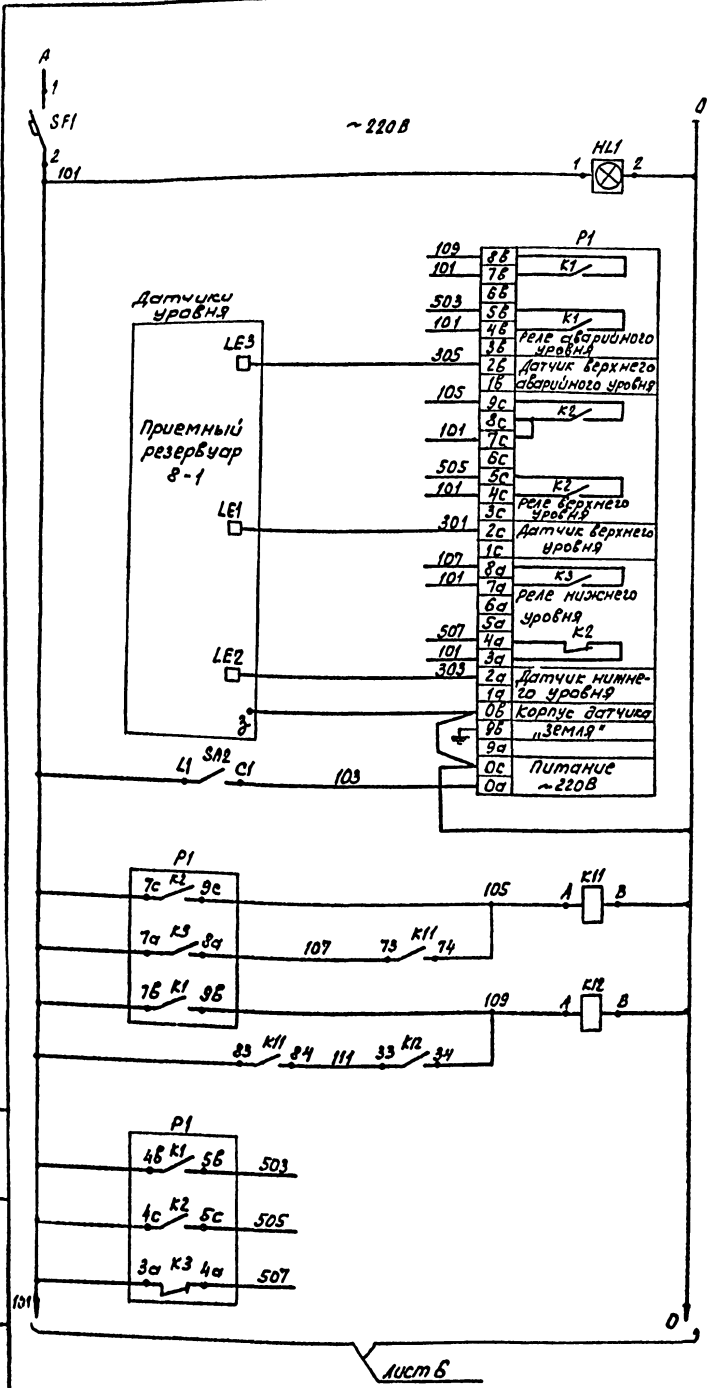 А
О
1
SF1
~220В
2
101
HL1
1
2
P1
Датчики
уровня
109
8в
К1
101
7в
6в
503
5в
К1
101
4в
Реле аварийного
3в
уровня
LE3
305
2в
Датчик верхнего
1в
аварийного уровня
105
9с
К2
8с
101
7с
6с
Приемный
резервуар
8-1
505
5с
К2
101
4с
Реле верхнего
3с
уровня
LE1
301
2с
Датчик верхнего
1с
уровня
107
8а
К3
101
7а
Реле нижнего
6а
уровня
5а
507
4а
К2
101
3а
LE2
303
2а
Датчик нижне-
1а
го уровня
з
0в
Корпус датчика
9в
„Земля"
9а
0с
Питание
0а
~220В
L1
SA2
C1
103
P1
7с
К2
9с
105
А
К11
В
7а
К3
8а
107
73
К11
74
7в
К1
9в
109
А
К12
В
83
К11
84
111
33
К12
34
P1
4в
К1
5в
503
4с
К2
5с
505
3а
К3
4а
507
101
О
Лист 6